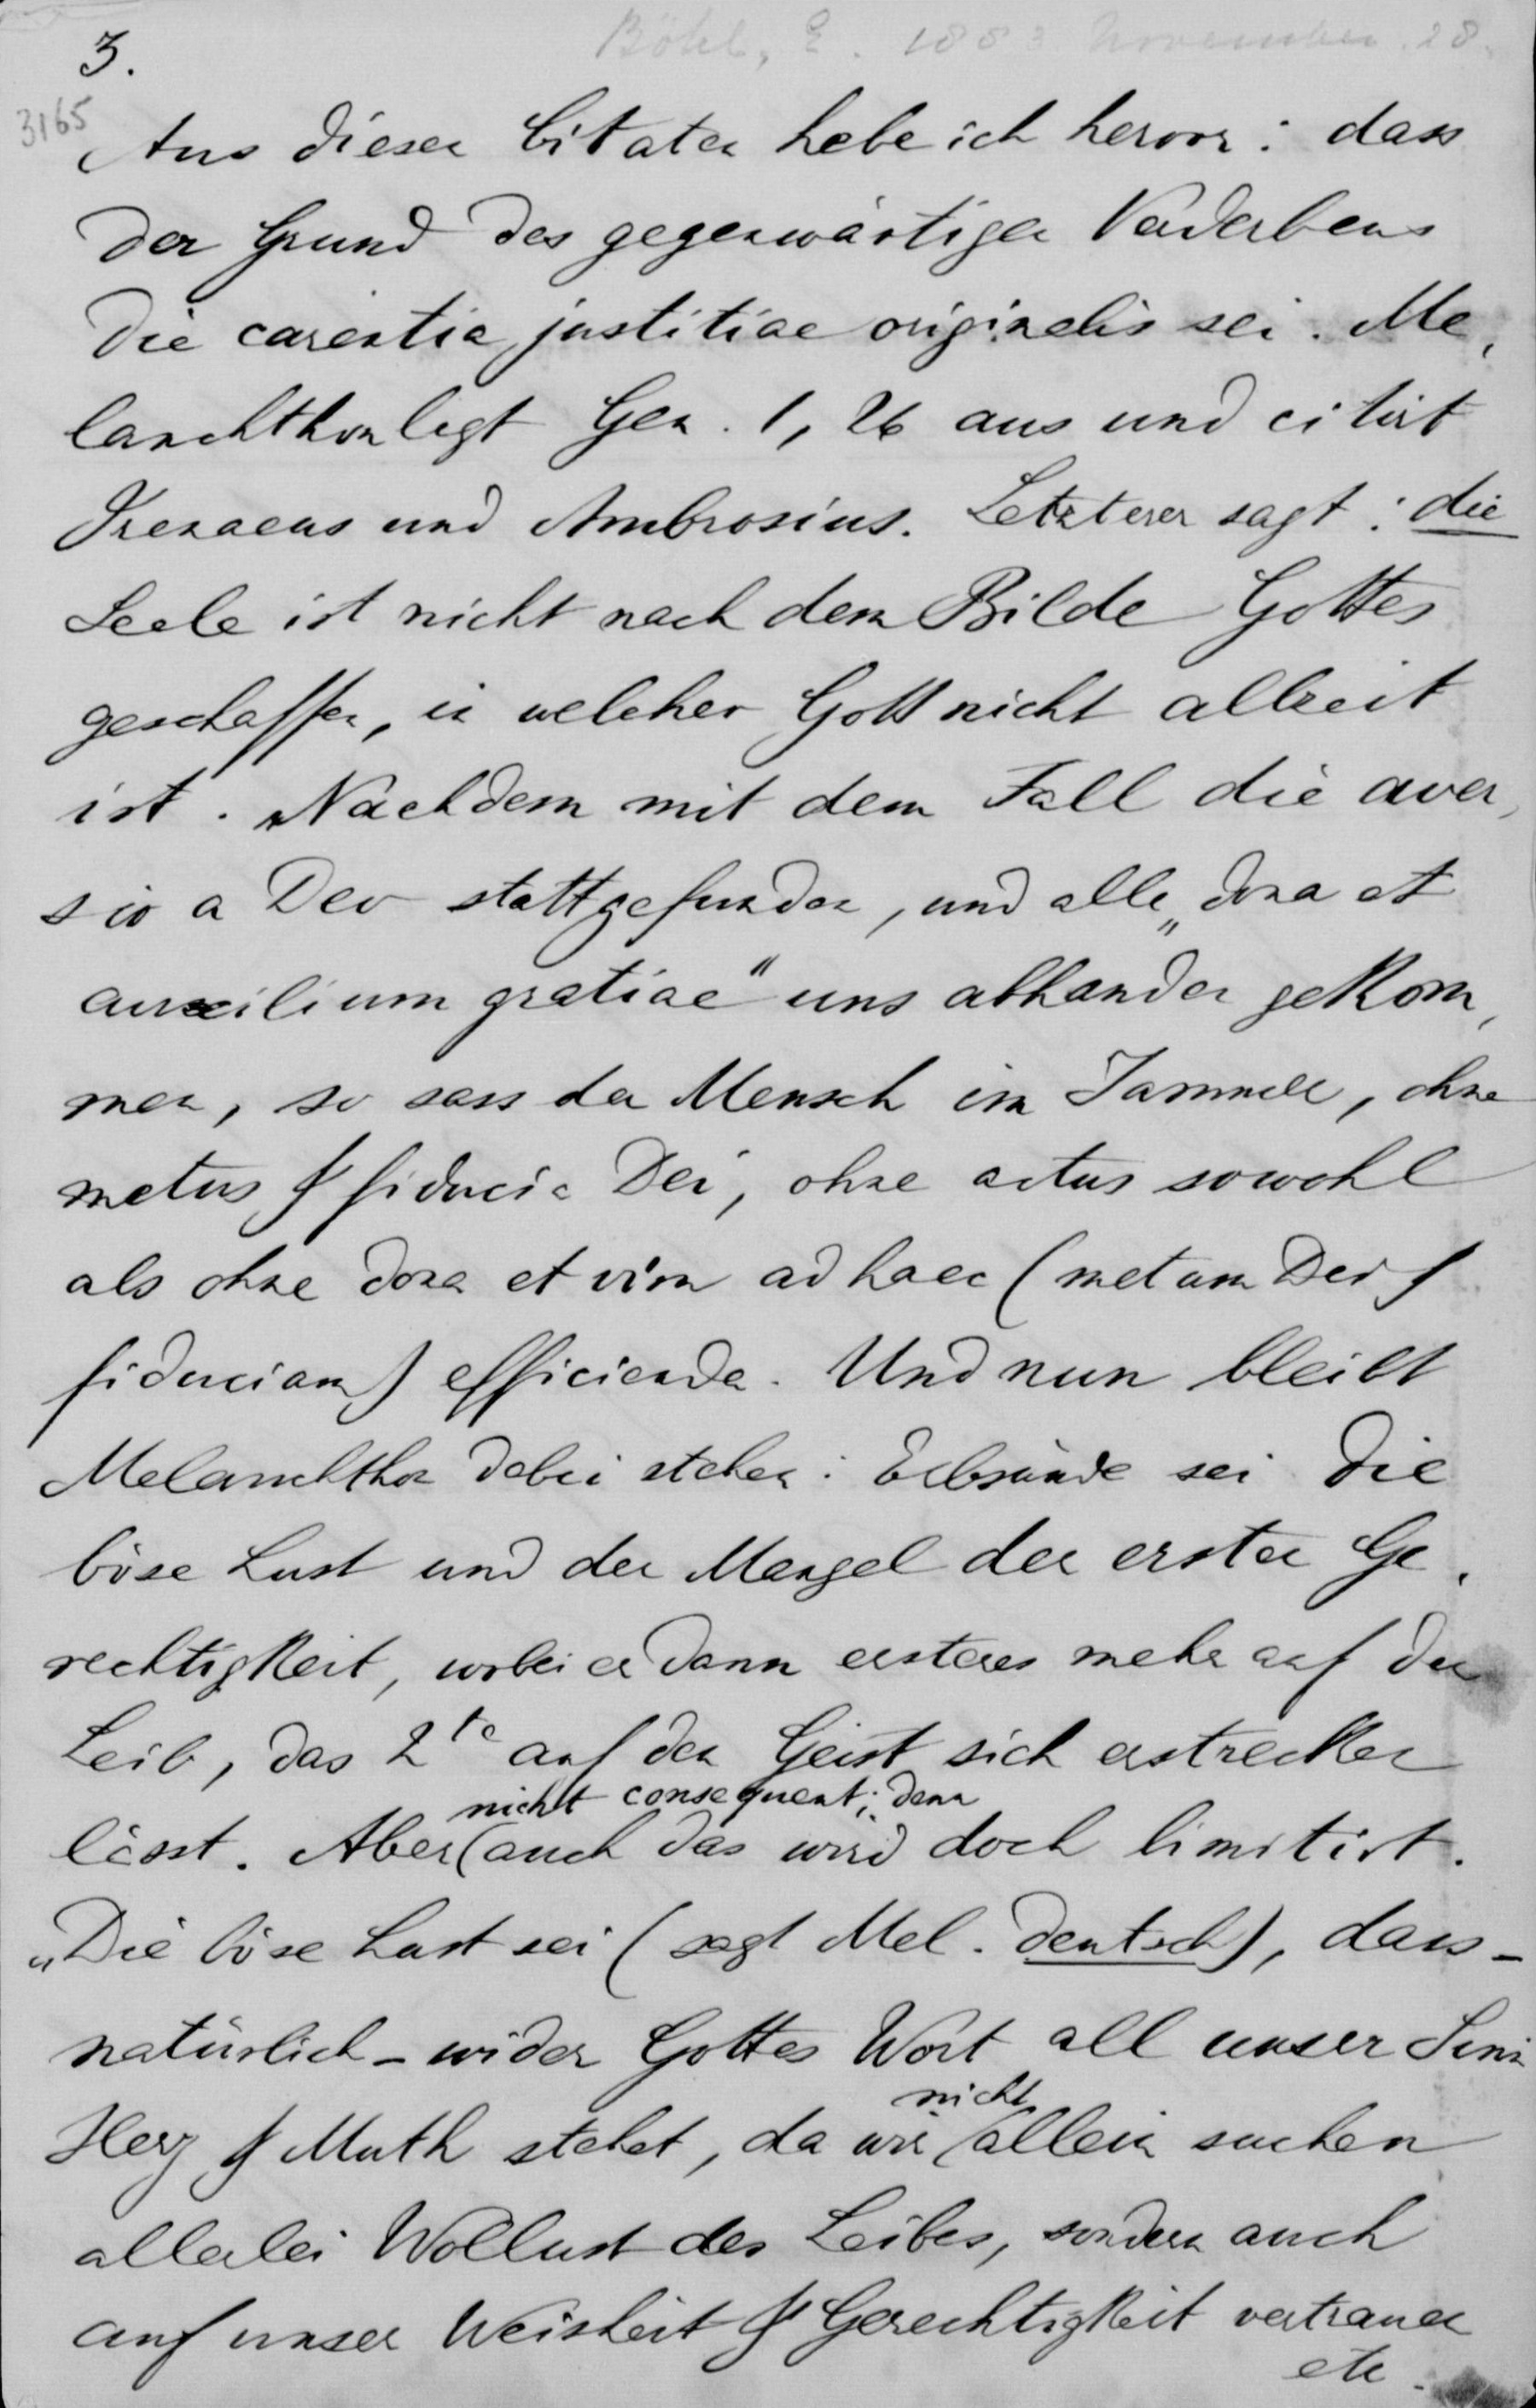 Böhl, E. 1883 November 28.
3.
3165
Aus diesen Citaten hebe ich hervor: dass
der Grund des gegenwärtigen Verderbens
die carentia justitiae originalis sei. Me,
lanchthon legt Gen. 1, 26 aus und citirt
Irenaeus und Ambrosius. Letzterer sagt: die
Seele ist nicht nach dem Bilde Gottes
geschaffen, in welcher Gott nicht allzeit
ist. Nachdem mit dem Fall die aver,
sio a Deo stattgefunden, und alle „dona et
auxilium gratiae" uns abhanden gekom,
men, so sass der Mensch im Jammer, ohne
metus & fiducia Dei, ohne actus sowohl
als ohne dona et vim ad haec (metum Dei &
fiduciam) efficienda. Und nun bleibt
Melanchthon dabei stehen: Erbsünde sei die
böse Lust und der Mangel der ersten Ge,
rechtigkeit, wobei er dann ersteres mehr auf den
Leib, das 2te auf den Geist sich erstrecken
nicht consequent; denn
lässt. Aber (auch das wird doch limitirt.
„Die böse Lust sei (sagt Mel. deutsch), dass -
natürlich - wider Gottes Wort all unser Sinn
nicht
Herz & Muth stehet, da wir (allein suchen
allerlei Wollust des Leibes, sondern auch
auf unser Weisheit & Gerechtigkeit vertrauen
etc.